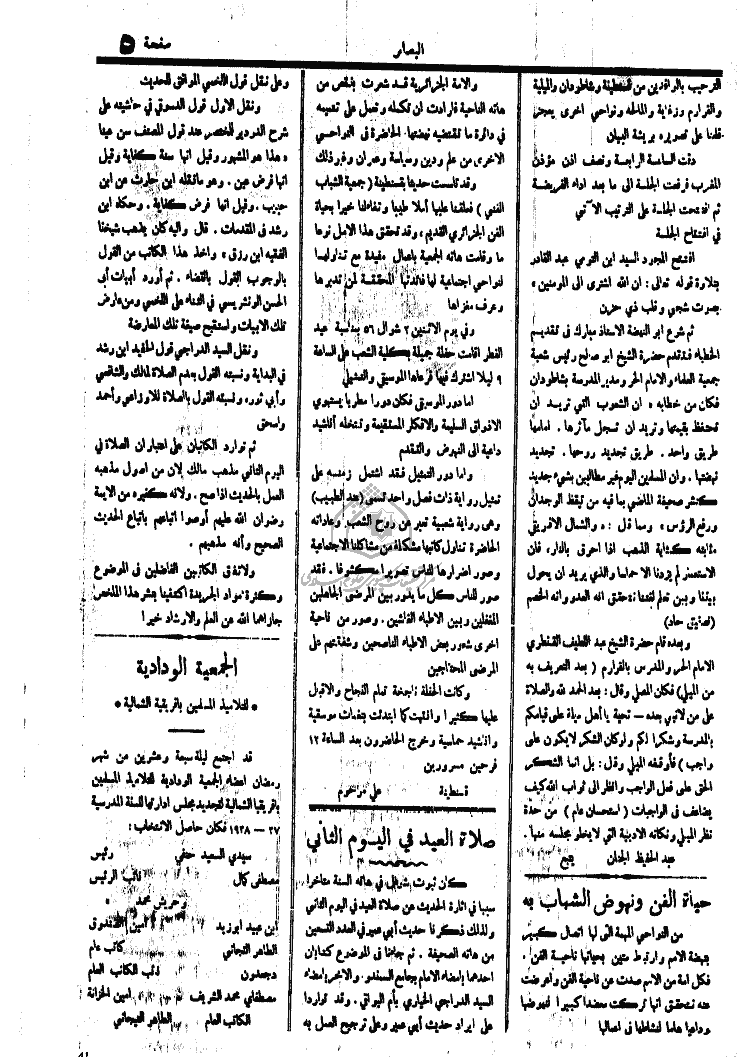 صفحة ٥
البصائر
الترحيب بالوافدين من قسنطينة وشاطودان والميلية
والقرارم وزغاية والمالحه ونواحي اخرى يعجز
قلمنا على تصويره بريشة البيان
دقت الساعة الرابعة ونصف اذن مؤذن
المغرب فرفعت الجلسة الى ما بعد اداء الفريضة
ثم افتتحت الجلسة على الترتيب الآتي
في افتتاح الجلسة
افتتح المجود السيد ابن التومي عبد القادر
بتلاوة قوله تعالى: ان الله اشترى الى المومنين،
بصوت شجي وقلب ذي حزن
ثم شرع ابو النهضة الاستاذ مبارك فى تقديم
الخطباء فتقدم حضرة الشيخ ابو صالح رئيس شعبة
جمعية العلماء والامام الحر ومدير المدرسة بشاطودان
فكان من خطابه « ان الشعوب التي تريد ان
تحتفظ بقيمتها وتريد ان تسجل مآثرها. امامها
طريق واحد. طريق تجديد روحها. تجديد
نهضتها. وان المسلمين اليوم غير مطالبين بشيء جديد
كنشر صحيفة الماضي بما فيه من تيقظ الوجدان
ورفع الرؤس» ومما قال: «والشمال الافريقي
الاستعمار لم يزدنا الا حماسا والذي يريد ان يحول
بيننا وبين تعلم لغتنا نتحقق انه العدو وانه الخصم
(تصفيق حاد)
وبعده قام حضرة الشيخ عبد اللطيف القنطري
الامام الحر والمدرس بالقرارم ( بعد التعريف به
من الميلي) فكان المصلي وقال: بعد الحمد لله والصلاة
على من لا نبي بعده — تحية يا أهل ميلة على قيامكم
بالمدرسة وشكرا لكم ولو كان الشكر لا يكون على
واجب ) فأوقفه الميلي وقال: بل انما الشكر
الحق على فعل الواجب وانظر الى ثواب الله كيف
يضاعف فى الواجبات ( استحسان عام ) من حدة
نظر الميلي ونكاته الادبية التي لا يخلو مجلسه منها.
عبد الحفيظ الجنان يتبع
حياة الفن ونهوض الشباب به
من النواحي المهمة التى لها اتصال كبير
بنهضة الامم وارتباط متين بحياتها ناحية الفن.
فكل امة من الامم صدت عن ناحية الفن واعرضت
عنه نتحقق انها تركت معتمدا كبيرا لنهوضها
وداعيا هاما لنشاطها فى اعمالها
والامة الجزائرية قد شعرت بنقص من
هاته الناحية فارادت ان تكمله وتعمل على تعميمه
فى دائرة ما تقتضيه نهضتها الحاضرة فى النواحي
الاخرى من علم ودين وسياسة وعمران وغير ذلك
وقد تأسست حديثا بقسنطينة (جمعية الشباب
الفني) فعلقنا عليها أملا طيبا وتفاءلنا خيرا بحياة
الفن الجزائري القديم، وقد تحقق هذا الامل نوعا
ما وقامت هاته الجمعية باعمال مفيدة مع تناولها
لنواحي اجتماعية لها فائدتها المحققة لمن تدبرها
وعرف مغزاها
وفي يوم الاثنين ٢ شوال ٥٦ بمناسبة عيد
الفطر اقامت حفلة جميلة بكلية الشعب على الساعة
٩ ليلا اشترك فيها فرعاها الموسيقي والتمثيلي
اما دور الموسيقى فكان دورا مطربا يستهوي
الاذواق السليمة والافكار المستقيمة وتتخله أناشيد
داعية الى النهوض والتقدم
واما دور التمثيل فقد اشتمل زمنه على
تمثيل رواية ذات فصل واحد تسمى (عند الطبيب)
وهى رواية شعبية تعبر عن روح الشعب وعاداته
الحاضرة تناول كاتبها مشكلة من مشاكلنا الاجتماعية
وصور اضرارها للناس تصويرا مكشوفا. فقد
صور للناس كل ما يدور بين المرضى الجاهلين
المغفلين وبين الاطباء الغاشين. وصور من ناحية
اخرى شعور بعض الاطباء الناصحين وشفقتهم على
المرضى المحتاجين
وكانت الحفلة ناجحة تمام النجاح والاقبال
عليها كثيرا وانتهت كما ابتدئت بنغمات موسيقية
واناشيد حماسية وخرج الحاضرون بعد الساعة ١٢
فرحين مسرورين
قسنطينة علي مرحوم
صلاة العيد في اليوم الثاني
كان ثبوت شوال في هاته السنة متأخرا
سببا في اثارة الحديث عن صلاة العيد في اليوم الثاني
ولذلك ذكرنا حديث أبي عمير في العدد التسعين
من هاته الصحيفة. ثم جاءنا فى الموضوع كتابان
احدهما بامضاء الامام بجامع السندو، والاخر بامضاء
السيد الدراجي الخياري بأم البواقي. وقد تواردا
على ايراد حديث أبي عمير وعلى ترجيح العمل به
وعلى نقل قول اللخمي الموافق للحديث
ونقل الاول قول الدسوقي في حاشيته على
شرح الدردير لمختصر عند قول المصنف سن عينا
«هذا هو المشهور وقيل انها سنة كفاية وقيل
انها فرض عين. وهو ما نقله ابن حارث عن ابن
حبيب. وقيل انها فرض كفاية. وحكاه ابن
رشد فى المقدمات. قال واليه كان يذهب شيخنا
الفقيه ابن رزق» واخذ هذا الكاتب من القول
بالوجوب القول بالقضاء. ثم أورد أبيات أبي
الحسن الونشريسي في الثناء على اللخمي ومن عارض
تلك الابيات واستقبح صيغة تلك المعارضة
ونقل السيد الدراجي قول الحفيد ابن رشد
فى البداية ونسبته القول بعدم الصلاة لمالك والشافعي
وأبي ثور، ونسبته القول بالصلاة للاوزاعي وأحمد
واسحق
ثم توارد الكاتبان على اعتبار ان الصلاة في
اليوم الثاني مذهب مالك لان من اصول مذهبه
العمل بالحديث اذا صح. ولانه كغيره من الايمة
رضوان الله عليهم أوصوا اتباعهم باتباع الحديث
الصحيح وأنه مذهبهم.
ولاتفاق الكاتبين الفاضلين فى الموضوع
وكثرة مواد الجريدة اكتفينا بنشر هذا الملخص
جازاهما الله عن العلم والارشاد خيرا
الجمعية الودادية
* لتلاميذ المسلمين بافريقية الشمالية *
قد اجتمع ليلة سبعة وعشرين من شهر
رمضان اعضاء الجمعية الودادية للتلاميذ المسلمين
بافريقيا الشمالية لتجديد مجلس ادارتها للسنة المدرسية
٣٧ — ١٩٣٨ فكان حاصل الانتخاب:
سيدي السعيد حفي رئيس
مصطفى كمال نائب الرئيس
وحريش محمد »
ابن عبيد ابوزيد امين الصندوق
الطاهر التجاني كاتب عام
دجعدون نائب الكاتب العام
مصطفاي محمد الشريف امين الخزانة
الكاتب العام الطاهر التيجاني